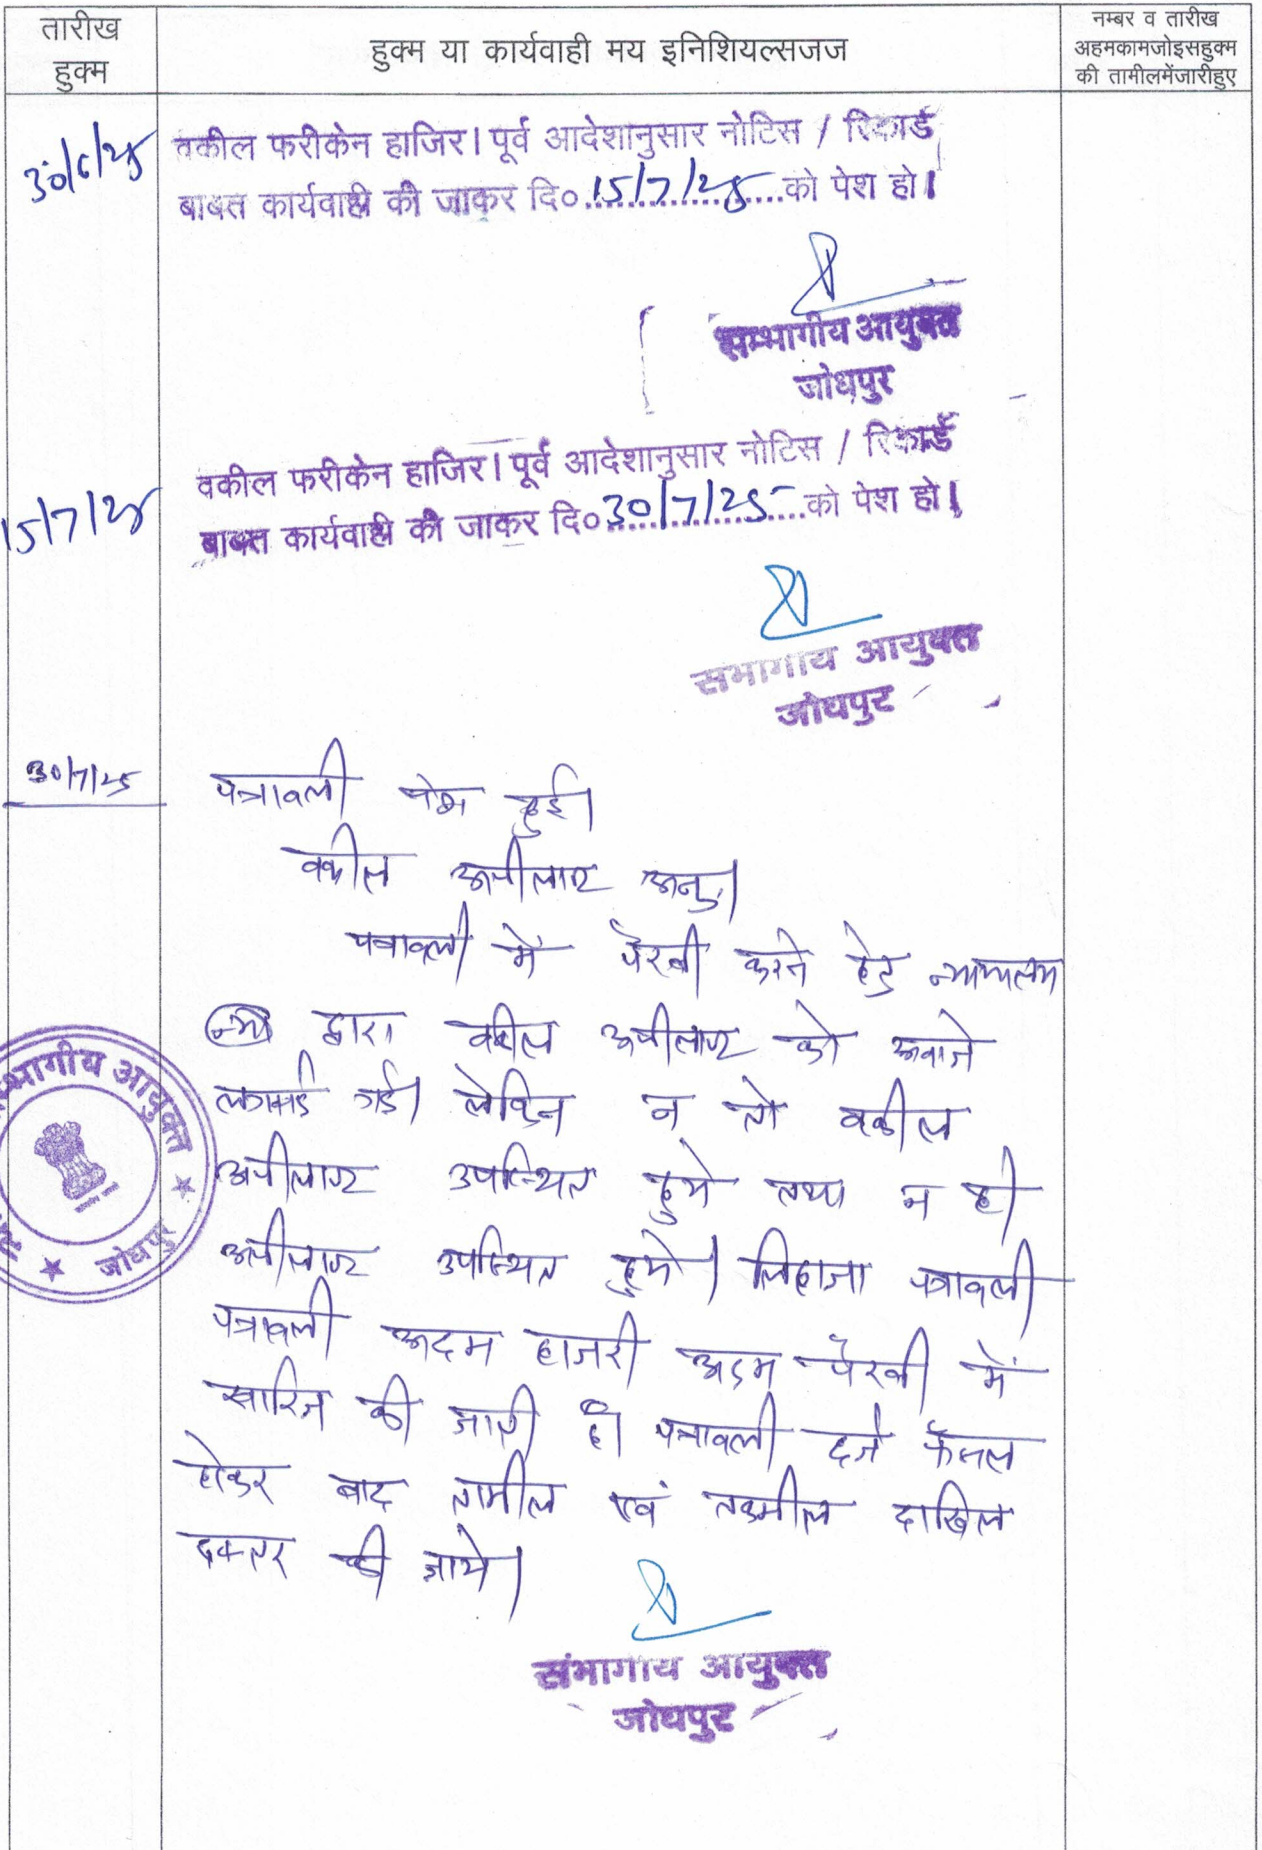 तारीख
हुक्म
हुक्म या कार्यवाही मय इनिशियल्सजज
नम्बर व तारीख
अहमकामजोइसहुक्म
की तामीलमेंजारीहुए
30/6/25
वकील फरीकेन हाजिर। पूर्व आदेशानुसार नोटिस / रिकार्ड
बाबत कार्यवाही की जाकर दि० 15/7/25 को पेश हो।
सम्भागीय आयुक्त
जोधपुर
15/7/25
वकील फरीकेन हाजिर। पूर्व आदेशानुसार नोटिस / रिकार्ड
बाबत कार्यवाही की जाकर दि० 30/7/25 को पेश हो।
संभागीय आयुक्त
जोधपुर
30/7/25
पत्रावली पेश हुई।
वकील अपीलाण्ट अनु।
पत्रावली में पैरवी करने हेतु न्यायालय
द्वारा वकील अपीलाण्ट को आवाजे
लगवाई गई। लेकिन न तो वकील
अपीलाण्ट उपस्थित हुये तथा न ही
अपीलाण्ट उपस्थित हुये। लिहाजा पत्रावली
पत्रावली अदम हाजरी अदम पैरवी में
खारिज की जाती है। पत्रावली दर्ज फैसल
होकर बाद तामील एवं तकमील दाखिल
दफ्तर की जाये।
संभागीय आयुक्त
जोधपुर
सम्भागीय आयुक्त
जोधपुर